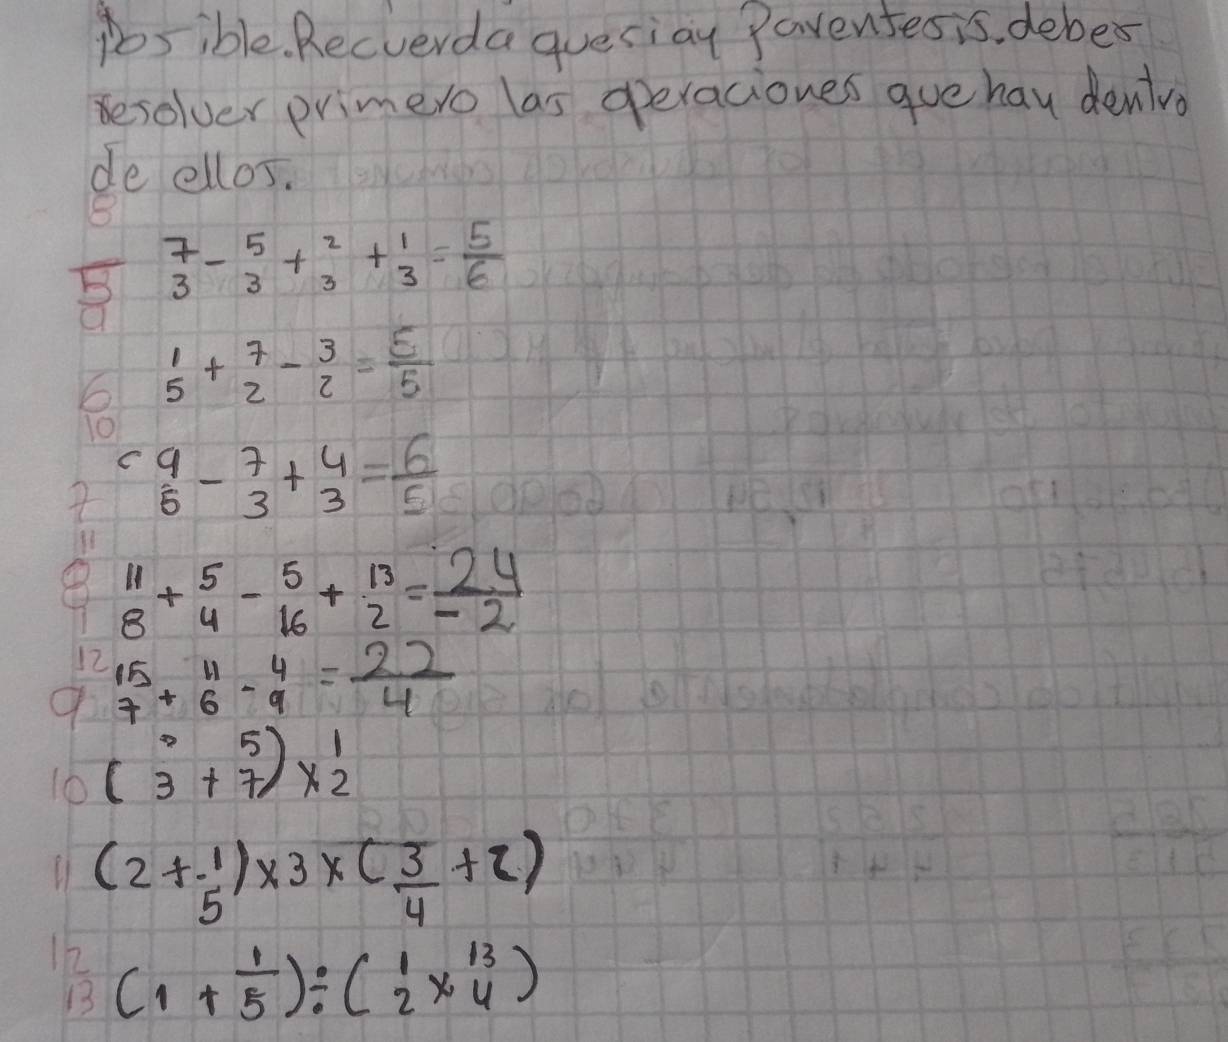 posible. Recuerda que si ay Parentesis. debes
resolver primero las operaciones que hay dentro
de ellos.
5 7/3 - 5/3 + 2/3 + 1/3 = 5/6
6 1/5 + 7/2 - 3/2 = 5/5
7 9/5 - 7/3 + 4/3 = 6/5
8 11/8 + 5/4 - 5/16 + 13/2 = 24/-2
9 15/7 + 11/6 - 4/9 = 22/4
10 ( /3 + 5/7) x 1/2
11 (2 + 1/5) x 3 x (3/4 + 2)
12 13 (1 + 1/5) ÷ (1/2 x 13/4)